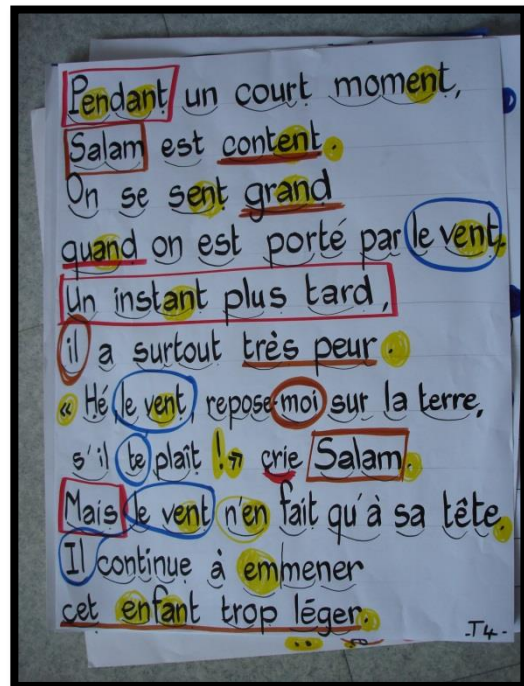 Pendant un court moment,
Salam est content.
On se sent grand
quand on est porté par le vent.
Un instant plus tard,
il a surtout très peur.
« Hé, le vent, repose-moi sur la terre,
s'il te plaît ! » crie Salam.
Mais le vent n'en fait qu'à sa tête.
Il continue à emmener
cet enfant trop léger.
-T4-